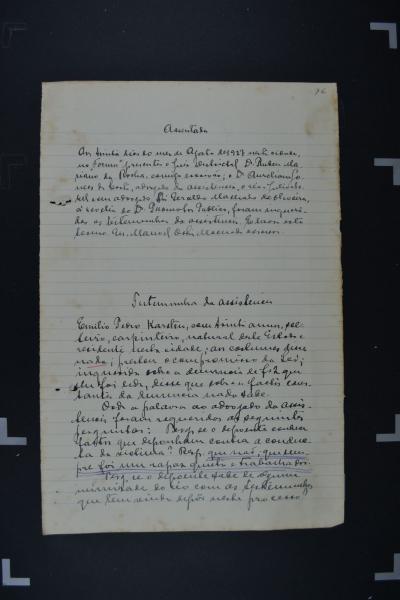 76
Assentada
Aos trinta dias do mes de Agosto de 1927 nesta cidade,
no forum presentes o Juiz Districtal Dr. Ruben Ma-
riano da Rocha, comigo escrivão; o Dr. Aureliano Go-
mes da Costa, advogado da assistencia, o réo
com seu advogado Geraldo Machado de Oliveira,
á revelia do Dr. Promotor Publico, foram inqueri-
das as testemunhas da assistencia. E lavro este
termo. Eu, Manoel Machado escrevo.
Testemunha da assistencia
Emilio Pedro Karsten, com trinta annos, sol-
teiro, carpinteiro, natural deste Estado e
residente nesta cidade; aos costumes disse
nada; prestou o compromisso da lei;
inquerido sobre a denuncia de fs 2 que
lhe foi lida, disse que sobre os factos cons-
tantes da denuncia nada sabe.
Dada a palavra ao advogado da assis-
tencia foram requeridas as seguintes
perguntas: Perg. se o depoente conhece
factos que deponham contra a conduc-
ta da victima? Resp. que não, que sem-
pre foi um rapaz quieto e trabalhador.
Perg. se o depoente sabe de alguma
inimizade do réo com as testemunhas
que tem vindo depôr neste processo